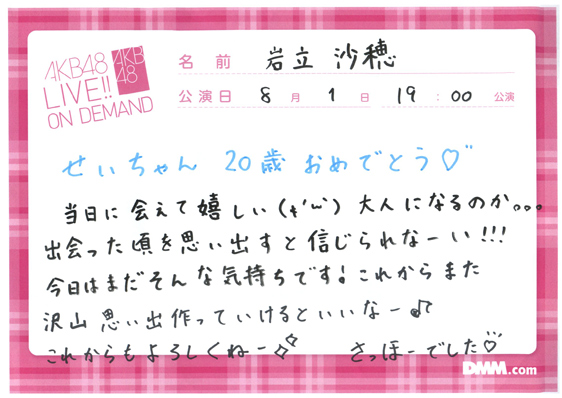 AKB48
LIVE!!
ON DEMAND
AKB
48
名前 岩立 沙穂
公演日 8月 1日 19:00 公演
せいちゃん 20歳 おめでとう♡
当日に会えて嬉しい(*'ω') 大人になるのか。。。
出会った頃を思い出すと信じられなーい!!!
今日はまだそんな気持ちです! これからまた
沢山 思い出作っていけるといいなー♪
これからもよろしくねー✧✧ さっほーでした♡
DMM.com